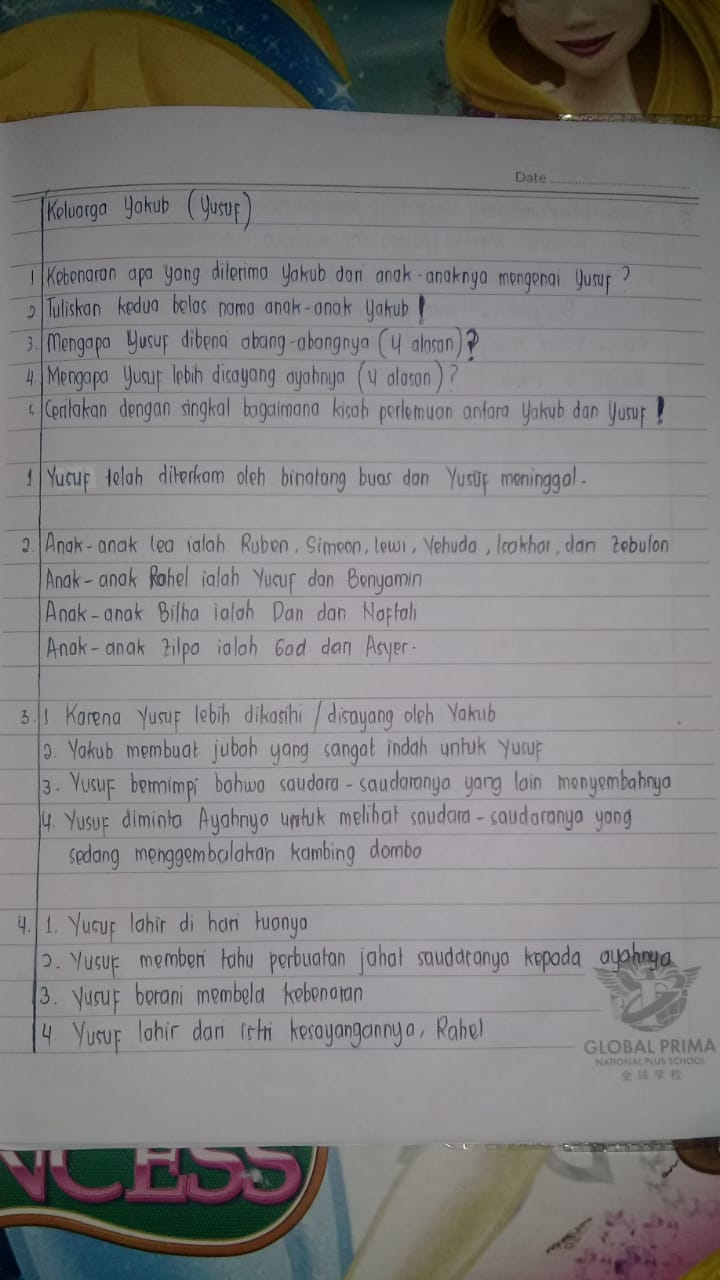 Date
Keluarga Yakub (Yusuf)
1 Kebenaran apa yang diterima Yakub dari anak-anaknya mengenai Yusuf?
2 Tuliskan kedua belas nama anak-anak Yakub!
3. Mengapa Yusuf dibenci abang-abangnya (4 alasan)?
4. Mengapa Yusuf lebih disayang ayahnya (4 alasan)?
5 Ceritakan dengan singkat bagaimana kisah pertemuan antara Yakub dan Yusuf!
1 Yusuf telah diterkam oleh binatang buas dan Yusuf meninggal.
2. Anak-anak Lea ialah Ruben, Simeon, Lewi, Yehuda, Isakhar, dan Zebulon
Anak-anak Rahel ialah Yusuf dan Benyamin
Anak-anak Bilha ialah Dan dan Naftali
Anak-anak Zilpa ialah Gad dan Asyer.
3. 1. Karena Yusuf lebih dikasihi / disayang oleh Yakub
2. Yakub membuat jubah yang sangat indah untuk Yusuf
3. Yusuf bermimpi bahwa saudara-saudaranya yang lain menyembahnya
4. Yusuf diminta Ayahnya untuk melihat saudara-saudaranya yang
sedang menggembalakan kambing domba
4. 1. Yusuf lahir di hari tuanya
2. Yusuf memberi tahu perbuatan jahat saudaranya kepada ayahnya
3. Yusuf berani membela kebenaran
4. Yusuf lahir dari istri kesayangannya, Rahel
GLOBAL PRIMA
NATIONAL PLUS SCHOOL
全球学校
NCESS